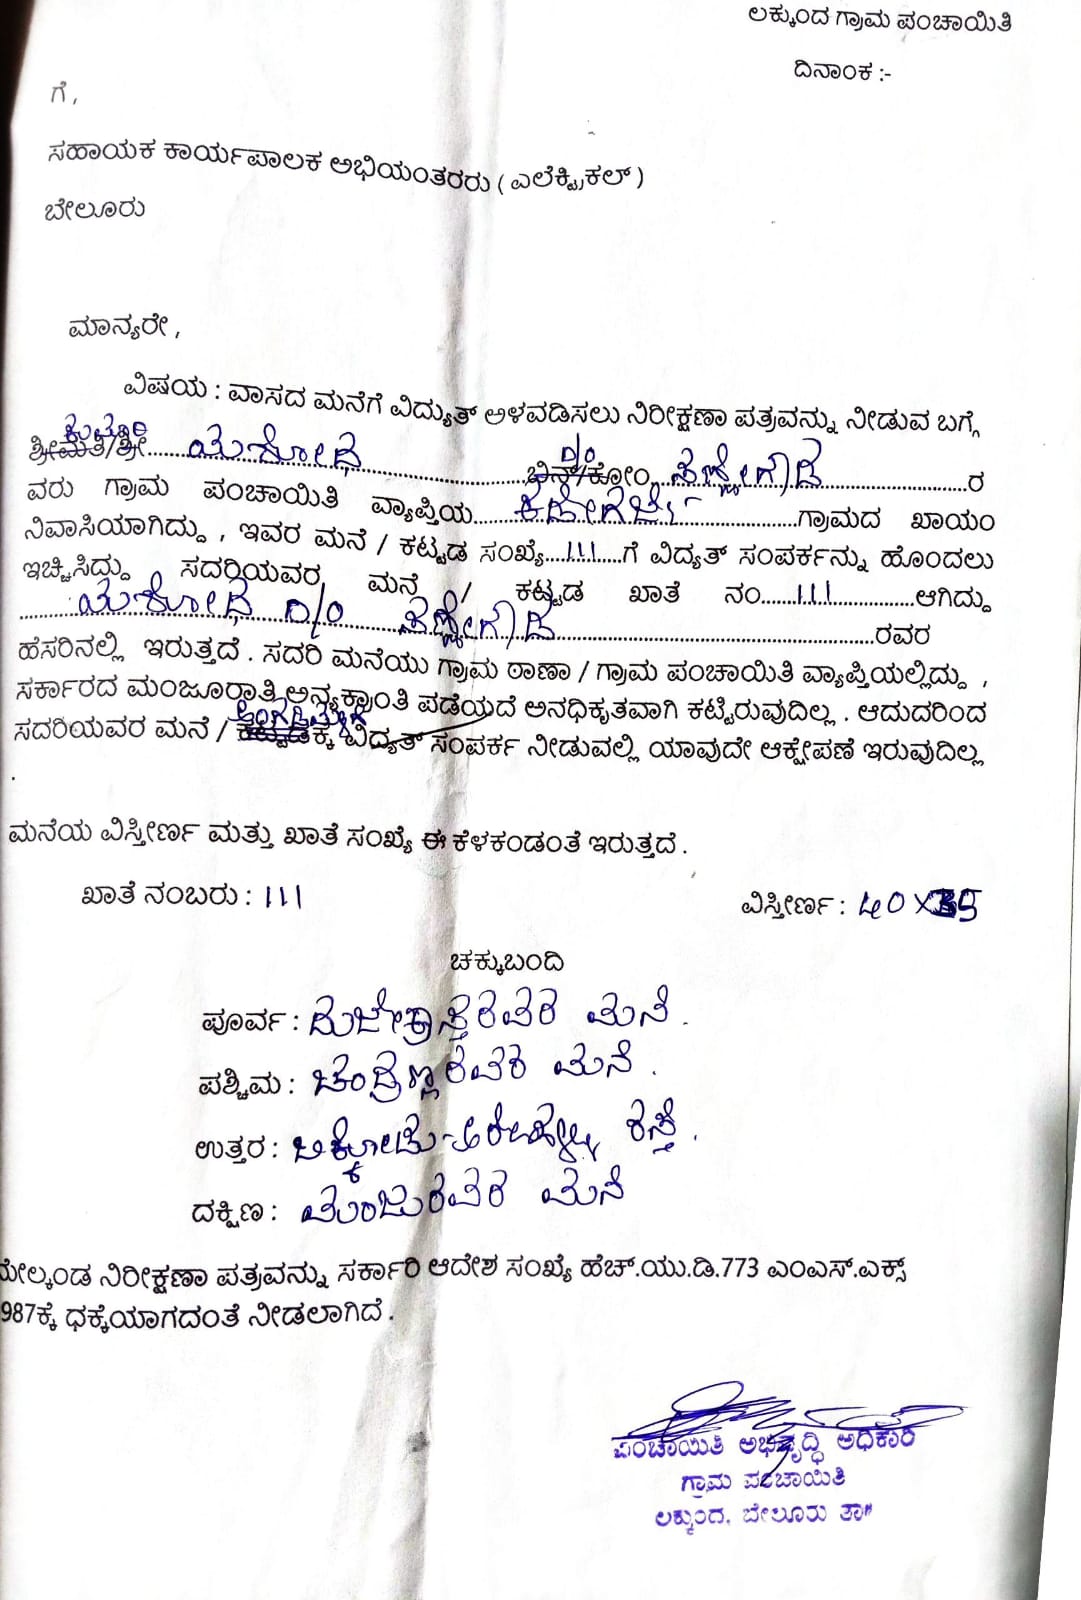 ಲಕ್ಕುಂದ ಗ್ರಾಮ ಪಂಚಾಯಿತಿ
ದಿನಾಂಕ :-
ಗೆ ,
ಸಹಾಯಕ ಕಾರ್ಯಪಾಲಕ ಅಭಿಯಂತರರು ( ಎಲೆಕ್ಟ್ರಿಕಲ್ )
ಬೇಲೂರು
ಮಾನ್ಯರೇ ,
ವಿಷಯ : ವಾಸದ ಮನೆಗೆ ವಿದ್ಯುತ್ ಅಳವಡಿಸಲು ನಿರೀಕ್ಷಣಾ ಪತ್ರವನ್ನು ನೀಡುವ ಬಗ್ಗೆ
ಕುಮಾರಿ D/o
ಶ್ರೀಮತಿ/ಶ್ರೀ.....ಯಶೋಧ.....ಬಿನ್/ಕೋಂ.....ಸಣ್ಣೇಗೌಡ.....ರ
ವರು ಗ್ರಾಮ ಪಂಚಾಯಿತಿ ವ್ಯಾಪ್ತಿಯ..........ಗ್ರಾಮದ ಖಾಯಂ
ನಿವಾಸಿಯಾಗಿದ್ದು , ಇವರ ಮನೆ / ಕಟ್ಟಡ ಸಂಖ್ಯೆ....111.....ಗೆ ವಿದ್ಯತ್ ಸಂಪರ್ಕನ್ನು ಹೊಂದಲು
ಇಚ್ಚಿಸಿದ್ದು ಸದರಿಯವರ ಮನೆ / ಕಟ್ಟಡ ಖಾತೆ ನಂ.....111.....ಆಗಿದ್ದು
.....ಯಶೋಧ D/o ಸಣ್ಣೇಗೌಡ.....ರವರ
ಹೆಸರಿನಲ್ಲಿ ಇರುತ್ತದೆ . ಸದರಿ ಮನೆಯು ಗ್ರಾಮ ಠಾಣಾ / ಗ್ರಾಮ ಪಂಚಾಯಿತಿ ವ್ಯಾಪ್ತಿಯಲ್ಲಿದ್ದು ,
ಸರ್ಕಾರದ ಮಂಜೂರಾತಿ ಅನ್ಯಕ್ರಾಂತಿ ಪಡೆಯದೆ ಅನಧಿಕೃತವಾಗಿ ಕಟ್ಟಿರುವುದಿಲ್ಲ . ಆದುದರಿಂದ
ಸದರಿಯವರ ಮನೆ / ಕಟ್ಟಡಕ್ಕೆ ವಿದ್ಯತ್ ಸಂಪರ್ಕ ನೀಡುವಲ್ಲಿ ಯಾವುದೇ ಆಕ್ಷೇಪಣೆ ಇರುವುದಿಲ್ಲ
.
ಮನೆಯ ವಿಸ್ತೀರ್ಣ ಮತ್ತು ಖಾತೆ ಸಂಖ್ಯೆ ಈ ಕೆಳಕಂಡಂತೆ ಇರುತ್ತದೆ .
ಖಾತೆ ನಂಬರು : 111 ವಿಸ್ತೀರ್ಣ : 40 X 35
ಚಕ್ಕುಬಂದಿ
ಪೂರ್ವ : ರವರ ಮನೆ .
ಪಶ್ಚಿಮ : ಚಂದ್ರಣ್ಣರವರ ಮನೆ .
ಉತ್ತರ : ರಸ್ತೆ .
ದಕ್ಷಿಣ : ಮಂಜುರವರ ಮನೆ
ಮೇಲ್ಕಂಡ ನಿರೀಕ್ಷಣಾ ಪತ್ರವನ್ನು ಸರ್ಕಾರಿ ಆದೇಶ ಸಂಖ್ಯೆ ಹೆಚ್.ಯು.ಡಿ.773 ಎಂಎಸ್.ಎಕ್ಸ್
987ಕ್ಕೆ ಧಕ್ಕೆಯಾಗದಂತೆ ನೀಡಲಾಗಿದೆ .
ಪಂಚಾಯಿತಿ ಅಭಿವೃದ್ಧಿ ಅಧಿಕಾರಿ
ಗ್ರಾಮ ಪಂಚಾಯಿತಿ
ಲಕ್ಕುಂದ, ಬೇಲೂರು ತಾ||